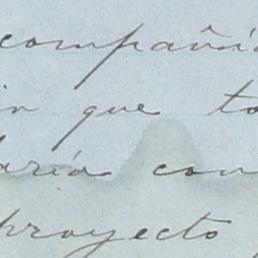 compañía
in que to
laría con
proyecto